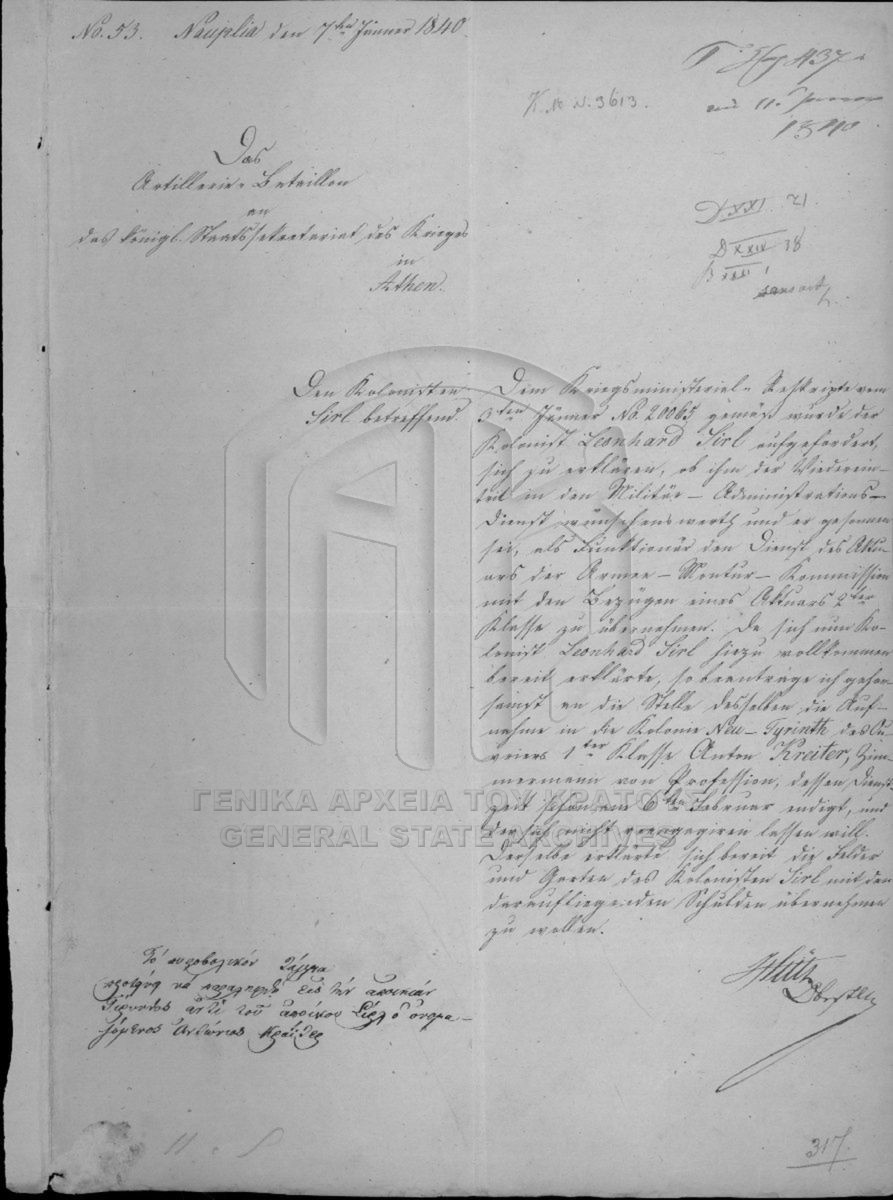 No. 53. Nauplia den 7ten Jänner 1840.
437
11. 
1840
K. M. N. 3613.
Das
Artillerie-Bataillon
an
das königl. Staatssekretariat des Krieges
in
Athen.
D XXI. 21.
D XXIV 38
XXXI 1
Den Kolonisten
Sirl betreffend.
Dem Kriegsministerial-Reskripte vom
3ten Jänner No. 20065 gemäß wurde der
Kolonist Leonhard Sirl aufgefordert,
sich zu erklären, ob ihm der Wiederein-
tritt in den Militär-Administrations-
Dienst wünschenswerth und er gesonnen
sei, als Funktionär den Dienst des Aktu-
ars der Armee-Montur-Kommission
mit den Bezügen eines Aktuars 2ter
Klasse zu übernehmen. Da sich nun Ko-
lonist Leonhard Sirl hiezu vollkommen
bereit erklärte, so beantrage ich gehor-
samst an die Stelle desselben die Auf-
nahme in die Kolonie Neu-Tyrinth des Ou-
vriers 1ter Klasse Anton Kreiter, Zim-
mermann von Profession, dessen Dienst
zeit schon am 6ten Februar endigt, und
der sich nicht reengagiren lassen will.
Derselbe erklärte sich bereit die Felder
und Garten des Kolonisten Sirl mit den
daraufliegenden Schulden übernehmen
zu wollen.
Oberstlt
Τό πυροβολικόν Τάγμα
προτείνει νά παραληφθῇ εἰς τήν ἀποικίαν
Τίρυνθος ἀντί τοῦ ἀποίκου Σίρλ ὁ ὀνομα-
ζόμενος Ἀντώνιος Κράϊτερ
ΓΕΝΙΚΑ ΑΡΧΕΙΑ ΤΟΥ ΚΡΑΤΟΥΣ
GENERAL STATE ARCHIVES
317.